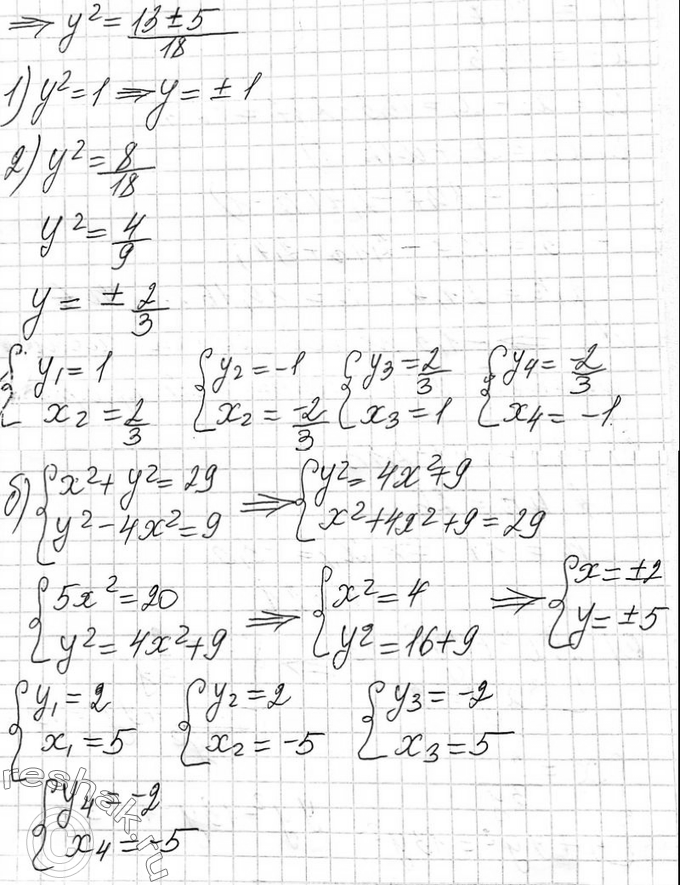 ⇒ y² = (13 ± 5)/18
1) y² = 1 ⇒ y = ± 1
2) y² = 8/18
y² = 4/9
y = ± 2/3
{ y₁ = 1 { y₂ = -1 { y₃ = 2/3 { y₄ = -2/3
x₂ = 2/3 x₂ = -2/3 x₃ = 1 x₄ = -1
б) { x² + y² = 29 ⇒ { y² = 4x² + 9
y² - 4x² = 9 x² + 4x² + 9 = 29
{ 5x² = 20 ⇒ { x² = 4 ⇒ { x = ±2
y² = 4x² + 9 y² = 16 + 9 y = ±5
{ y₁ = 2 { y₂ = 2 { y₃ = -2
x₁ = 5 x₂ = -5 x₃ = 5
{ y₄ = -2
x₄ = -5
reshak.ru